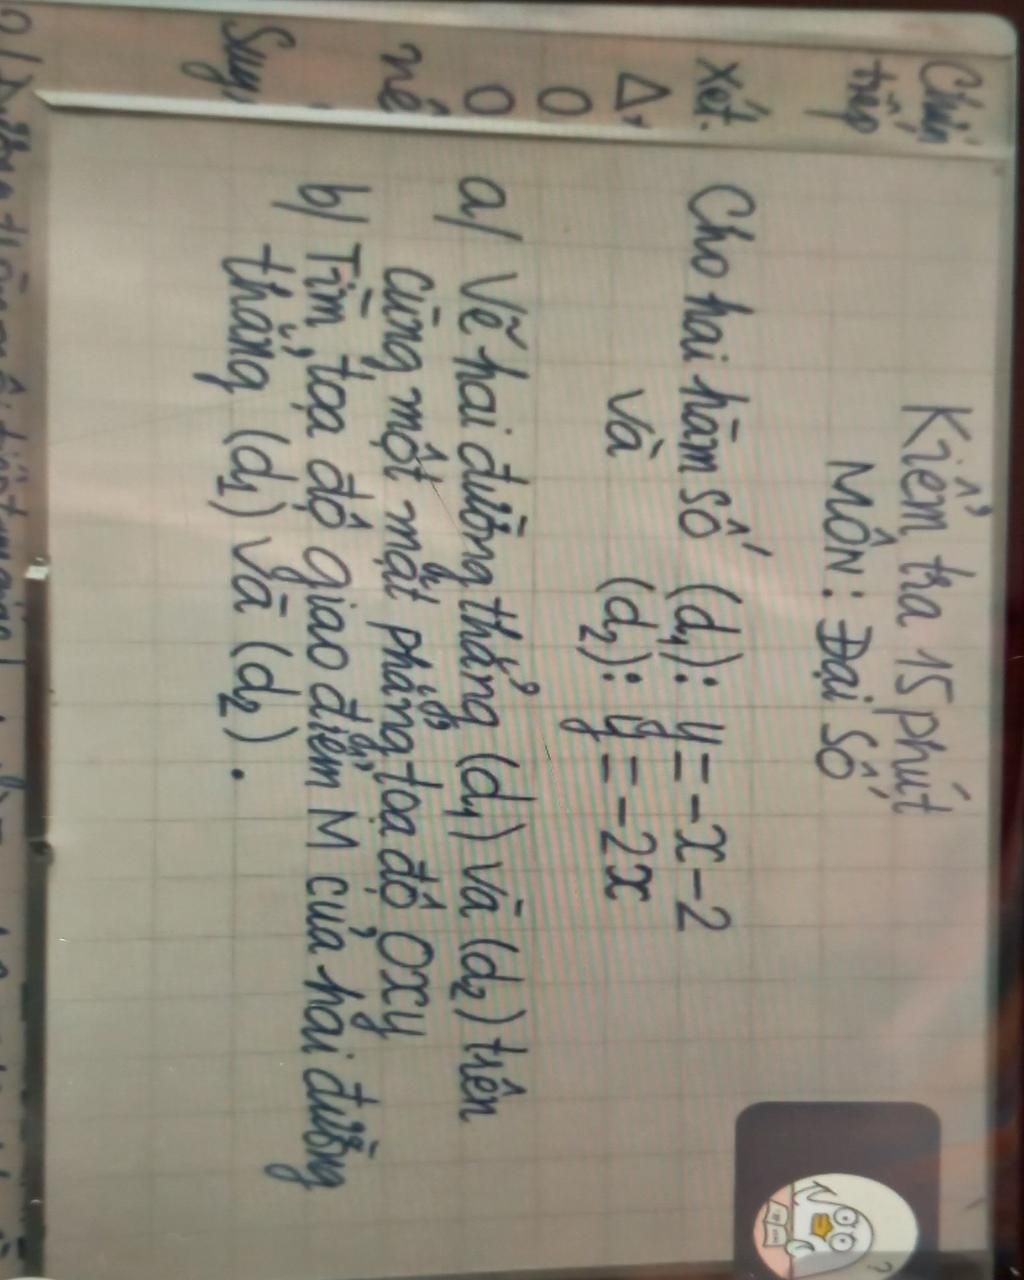 Chứn
tiếp
Xét
Δ
O
O
nê
Suy
Kiểm tra 15 phút
Môn: Đại Số
Cho hai hàm số (d1): y = -x-2
và (d2): y = -2x
a/ Vẽ hai đường thẳng (d1) và (d2) trên
cùng một mặt phẳng tọa độ Oxy
b/ Tìm tọa độ giao điểm M của hai đường
thẳng (d1) và (d2).